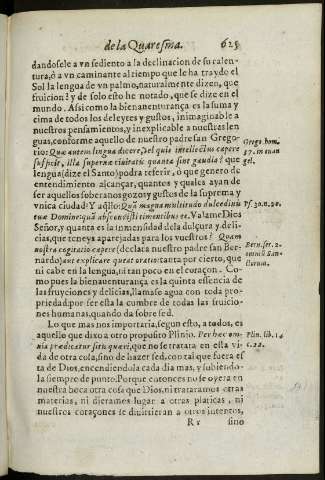 de la Quaresma. 625
dandosele a vn sediento a la declinacion de su calen-
tura, ò a vn caminante al tiempo que le ha traydo el
Sol la lengua de vn palmo, naturalmente dizen, que
fruicion? y de solo esto he notado, que se dize en el
mundo. Assi como la bienauenturança es la suma y
cima de todos los deleytes y gustos, inimaginable a
nuestros pensamientos, y inexplicable a nuestras len
guas, conforme aquello de nuestro padre san Grego-
tio: Quæ autem lengua dicere, vel quis intellectus capere
sufficit, illa supernæ ciuitatis quanta sint gaudia? que
lengua (dize el Santo) podra referir, ò que genero de
entendimiento alcançar, quantos y quales ayan de
ser aquellos soberanos gozos y gustos de la suprema y
vnica ciudad? Y aq̃llo: Quã magna multitudo dulcedinis
tuæ Domine: quã abscondisti timentibus te. Valame Dios
Señor, y quanta es la inmensidad dela dulçura y deli-
cias, que teneys aparejadas para los vuestros? Quam
nostra cogitatio capere (declara nuestro padre san Ber-
nardo) aut explicare queat oratio: tanta por cierto, que
ni cabe en la lengua, ni tan poco en el coraçon. Co-
mo pues la bienauenturança es la quinta essencia de
las fruyciones y delicias, llamase agua con toda pro-
priedad: por ser esta la cumbre de todas las fruicio-
nes humanas, quando da sobre sed.
Lo que mas nos importaria, segun esto, a todos, es
aquello que dixo a otro proposito Plinio. Per hæc om-
nia prædicatur sitis quæri, que no se tratara en esta vi-
da de otra cosa, sino de hazer sed, con tal que fuera es
ta de Dios, encendiendola cada dia mas, y subiendo-
la siempre de punto: Porque entonces no se oyera en
nuestra boca otra cosa que Dios, ni trataramos otras
materias, ni dieramos lugar a otras platicas, ni
nuestros coraçones se diuirtieran a otros intentos,
Rr sino
Grego. hom.
37. in euan
gel.
Ps. 30. n. 20.
Bern. ser. 2.
omniũ San-
ctorum.
Plin. lib. 14
c. 22.